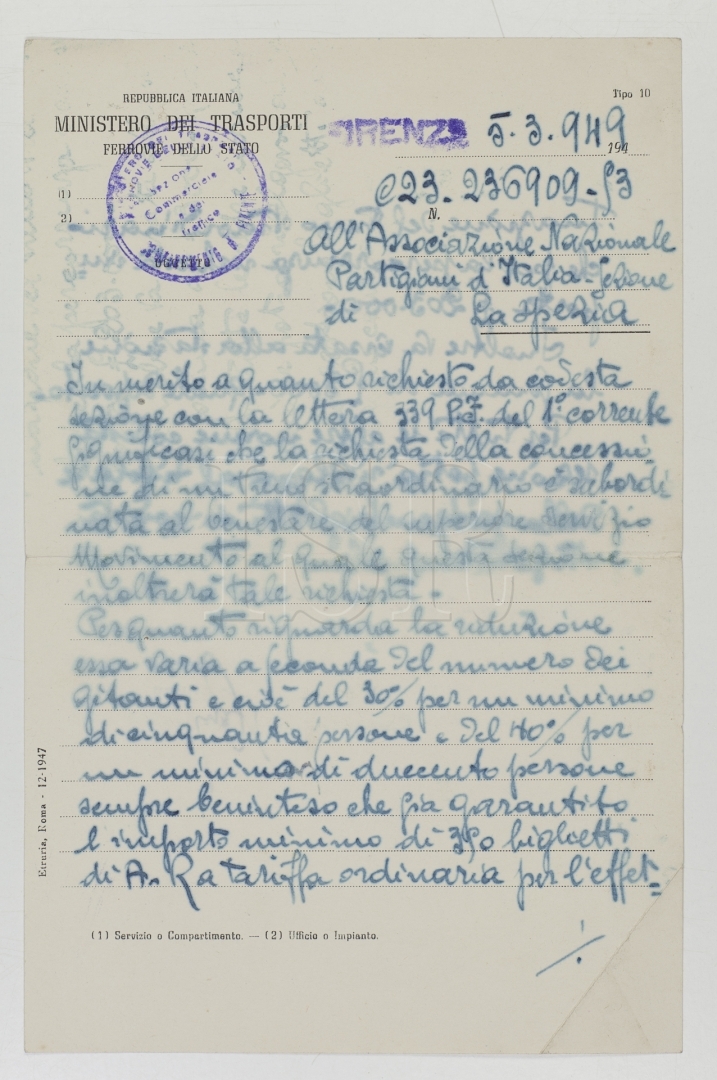 REPUBBLICA ITALIANA
Tipo 10
MINISTERO DEI TRASPORTI
FERROVIE DELLO STATO
FIRENZE 5.3.949
194
(1)
C23.236909-53
2)
N.
Sezione
Commerciale
e del
Traffico
OGGETTO
All'Associazione Nazionale
Partigiani d'Italia - Sezione
di La Spezia
In merito a quanto richiesto da codesta
sezione con la lettera 339 del 1° corrente
significasi che la richiesta della concessio
ne di un treno straordinario è subordi
nata al benestare del superiore Servizio
Movimento al quale questa sezione
inoltrerà tale richiesta -
Per quanto riguarda la riduzione
essa varia a seconda del numero dei
gitanti e cioè del 30% per un minimo
di cinquanta persone e del 40% per
un minimo di duecento persone
sempre beninteso che sia garantito
l'importo minimo di 350 biglietti
di A.R a tariffa ordinaria per l'effet=
./.
Etruria, Roma - 12-1947
(1) Servizio o Compartimento. — (2) Ufficio o Impianto.
ISR